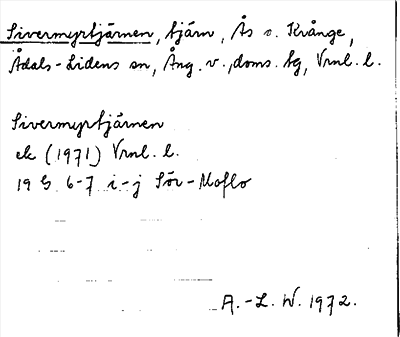 Sivermyrtjärnen, tjärn, Ås o. Krånge,
Ådals-Lidens sn, Ång. v., doms. hg, Vrnl. l.
Sivermyrtjärnen
ek (1971) Vrnl. l.
19 G 6-7 i-j Sör-Moflo
A.-L. W. 1972.